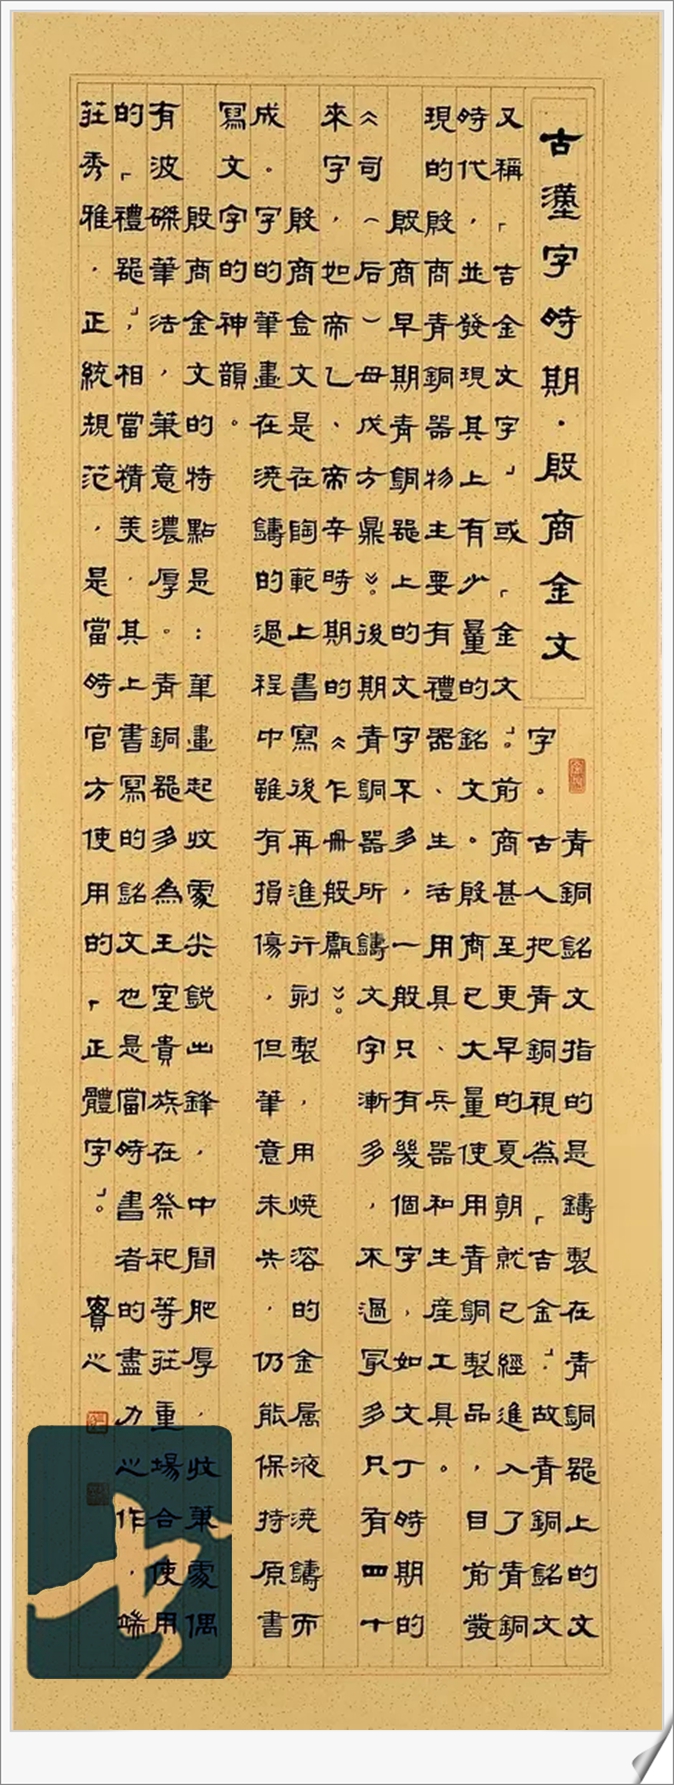 古漢字時期·殷商金文
青銅銘文指的是鑄製在青銅器上的文
字。古人把青銅視為「吉金」,故青銅銘文
又稱「吉金文字」或「金文」。前商甚至更早的夏朝就已經進入了青銅
時代,並發現其上有少量的銘文。殷商已大量使用青銅製品,目前發
現的殷商青銅器物主要有禮器、生活用具、兵器和生産工具。
殷商早期青銅器上的文字不多,一般只有幾個字,如文丁時期的
《司(后)母戊方鼎》。後期青銅器所鑄文字漸多,不過最多只有四十
來字,如帝乙、帝辛時期的《乍冊般甗》。
殷商金文是在陶範上書寫後再進行刻製,用燒溶的金属液澆鑄而
成。字的筆畫在澆鑄的過程中雖有損傷,但筆意未失,仍能保持原書
寫文字的神韻。
殷商金文的特點是:筆畫起收處尖銳出鋒,中間肥厚,收筆處偶
有波磔筆法,筆意濃厚。青銅器多為王室貴族在祭祀等莊重場合使用
的「禮器」,相當精美,其上書寫的銘文也是當時書者的盡力之作,端
莊秀雅,正統規范,是當時官方使用的「正體字」。 賓心